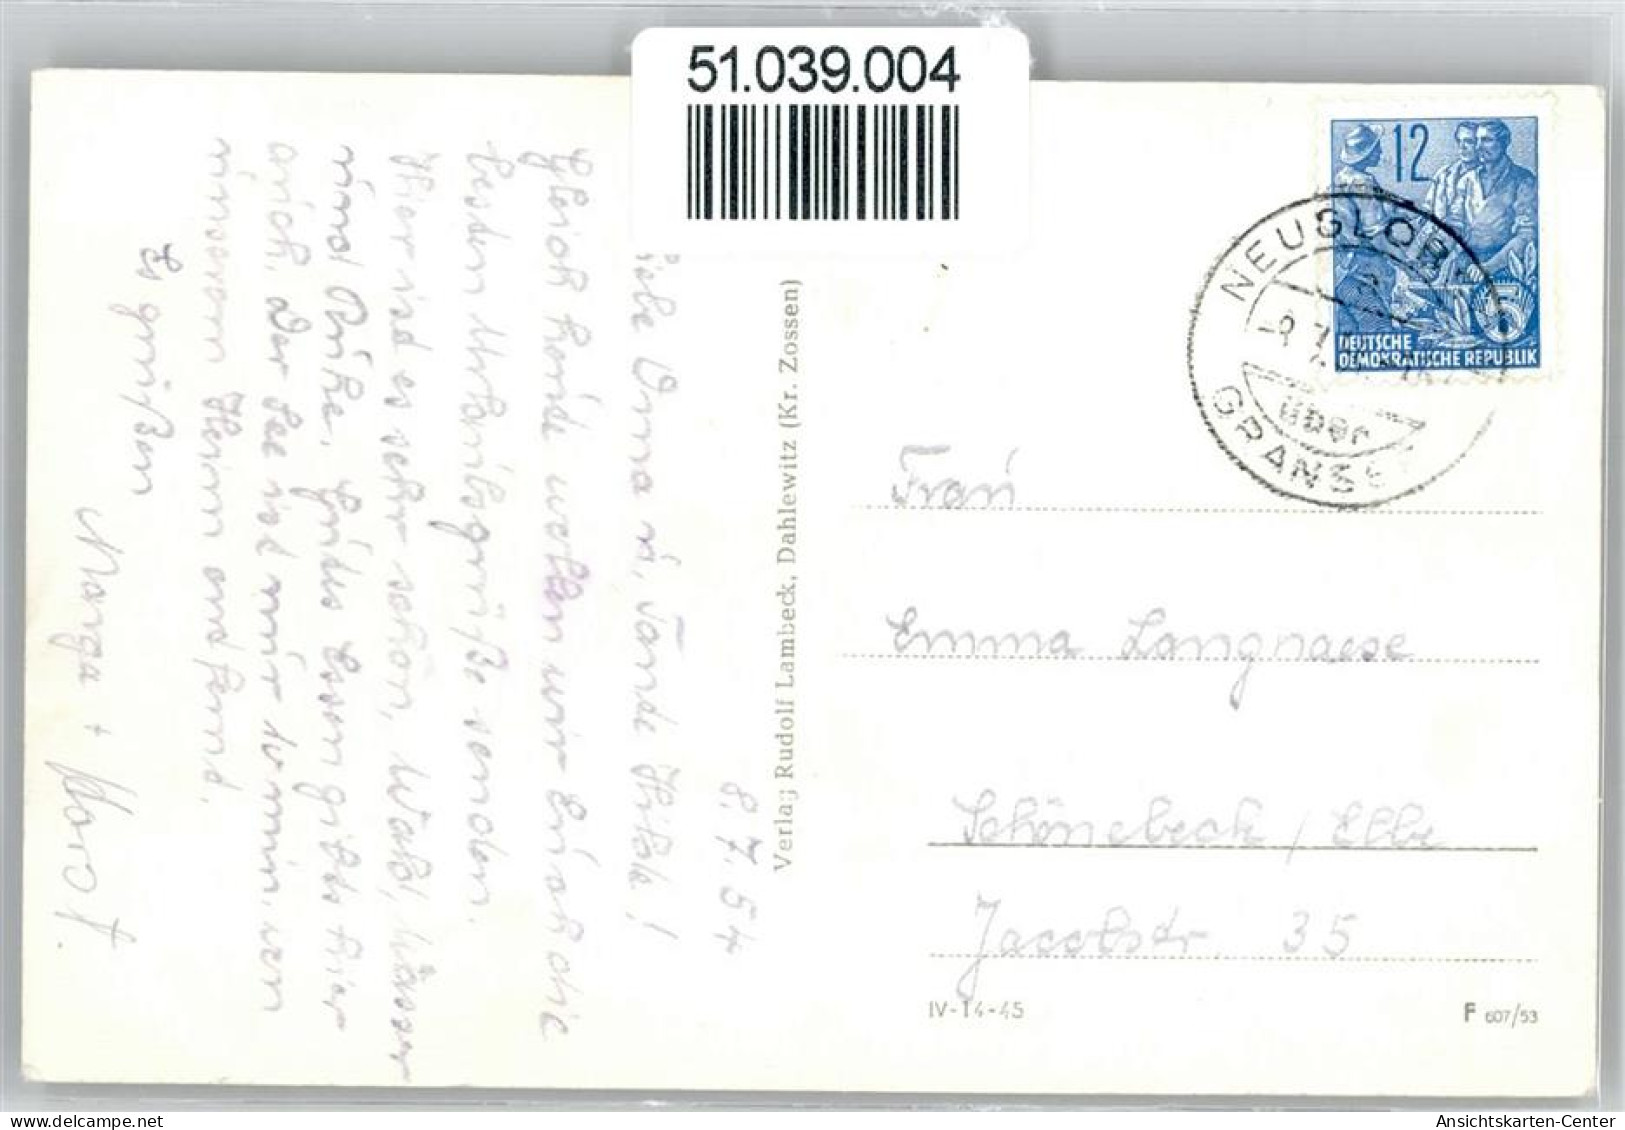 51.039.004
8.7.54
Liebe Oma u. Tante Hilde!
Gleich heute wollen wir Euch die
besten Urlaubsgrüße senden.
Hier ist es sehr schön, Wald, Wasser
und Ruhe, Gutes Essen gibt es hier
auch. Der See ist nur 10 min. von
unserem Heim entfernt.
Es grüßen
Marga + Horst.
Verlag Rudolf Lambeck, Dahlewitz (Kr. Zossen)
12
DEUTSCHE
DEMOKRATISCHE REPUBLIK
NEUGLOB
über
GRANSE
Frau
Emma Langnaese
Schönebeck / Elbe
Jacobstr. 35
IV-14-45
F 607/53
Ansichtskarten-Center